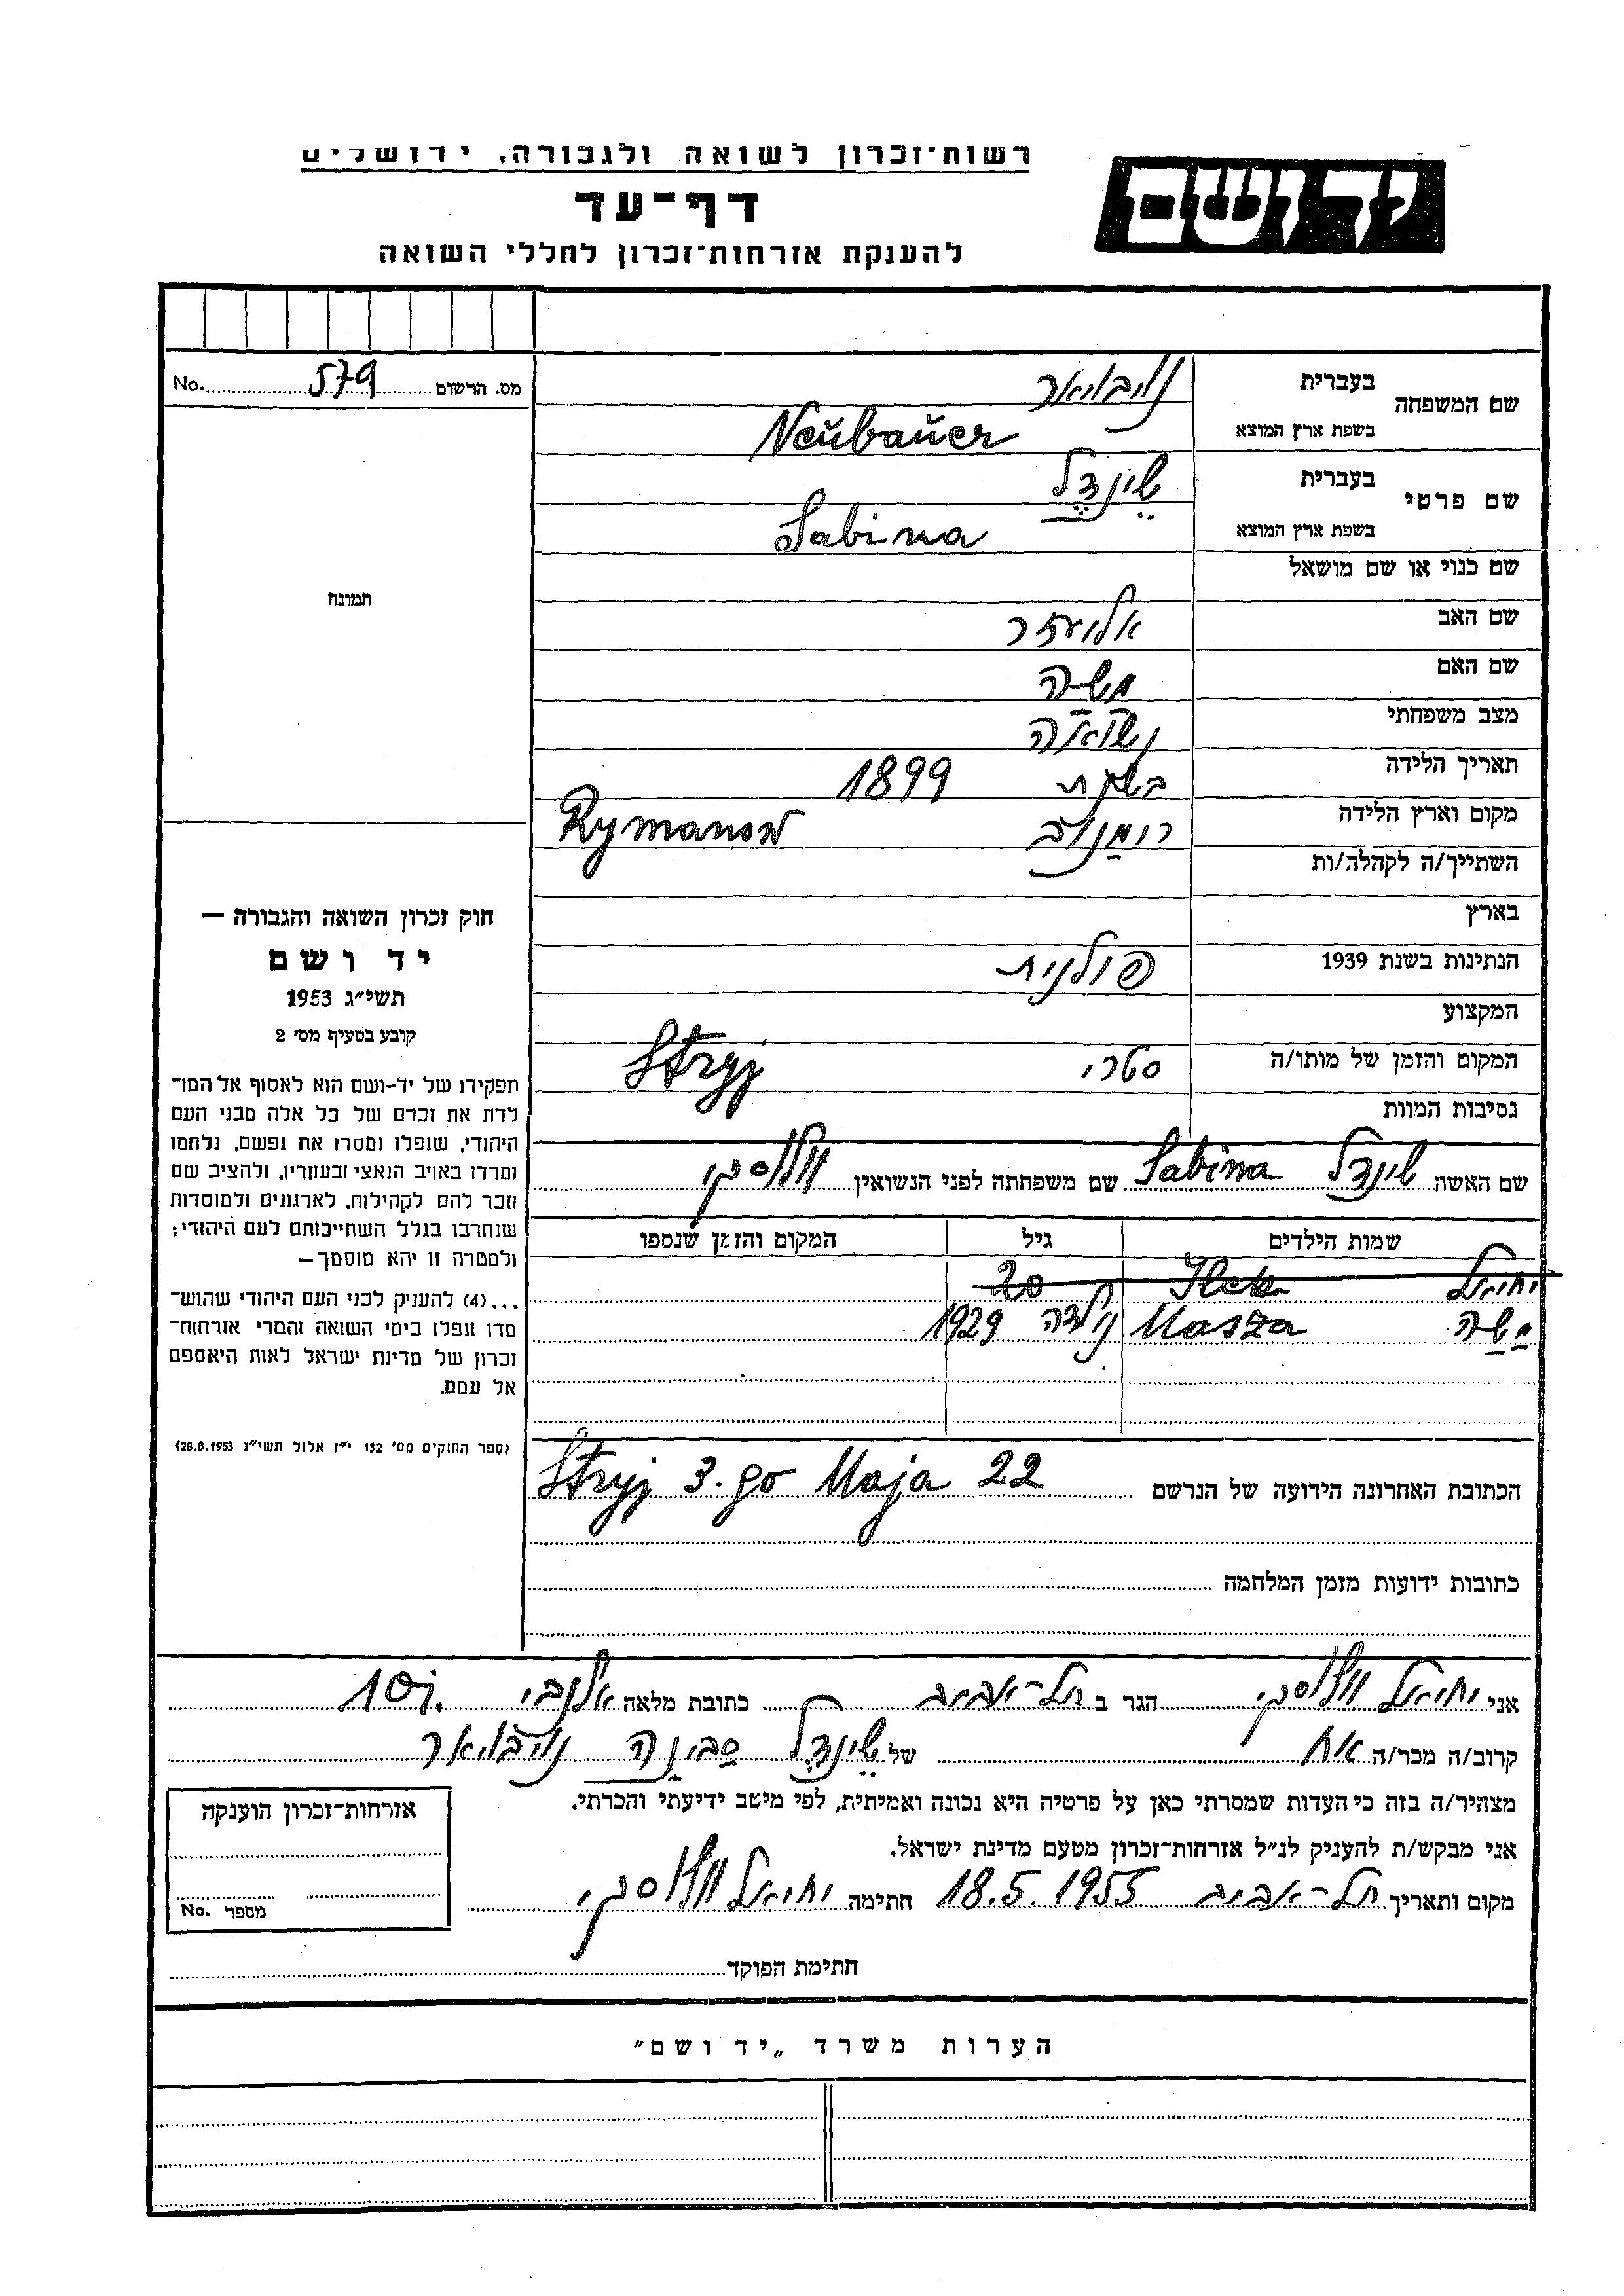 רשות־זכרון לשואה ולגבורה, ירושלים
יד ושם
דף־עד
להענקת אזרחות־זכרון לחללי השואה
מס. הרשום 579 No.
שם המשפחה
בעברית נויבואר
בשפת ארץ המוצא Neŭbaŭer
שם פרטי
בעברית שֵינדֶל
בשפת ארץ המוצא Sabina
שם כנוי או שם מושאל
שם האב אליעזר
שם האם משה
מצב משפחתי נשואה
תאריך הלידה בשנת 1899
מקום וארץ הלידה רימַנוב Rymanow
השתייך/ה לקהלה/ות
בארץ
הנתינות בשנת 1939 פולנית
המקצוע
המקום והזמן של מותו/ה סטרי Stryj
נסיבות המוות
תמונה
חוק זכרון השואה והגבורה —
יד ושם
תשי״ג 1953
קובע בסעיף מס׳ 2
תפקידו של יד-ושם הוא לאסוף אל המו־
לדת את זכרם של כל אלה מבני העם
היהודי, שנפלו ומסרו את נפשם, נלחמו
ומרדו באויב הנאצי ובעוזריו, ולהציב שם
וזכר להם לקהילות, לארגונים ולמוסדות
שנחרבו בגלל השתייכותם לעם היהודי;
ולמטרה זו יהא מוסמך—
...(4) להעניק לבני העם היהודי שהוש־
מדו ונפלו בימי השואה והמרי אזרחות־
זכרון של מדינת ישראל לאות היאספם
אל עמם.
(ספר החוקים מס׳ 132 י״ז אלול תשי״ג 28.8.1953)
שם האשה שינדל Sabina שם משפחתה לפני הנשואין
שמות הילדים גיל המקום והזמן שנספו
יחיאל 20
מַשַה Masza נולדה 1929
הכתובת האחרונה הידועה של הנרשם Stryj 3.go Maja 22
כתובות ידועות מזמן המלחמה
אני יחיאל הגר ב תל-אביב כתובת מלאה אלנבי
קרוב/ה מכר/ה אח של שֵינדֶל סַבינַה נויבואר
מצהיר/ה בזה כי העדות שמסרתי כאן על פרטיה היא נכונה ואמיתית, לפי מיטב ידיעתי והכרתי.
אני מבקש/ת להעניק לנ״ל אזרחות־זכרון מטעם מדינת ישראל.
מקום ותאריך תל-אביב 18.5.1955 חתימה יחיאל
חתימת הפוקד
אזרחות־זכרון הוענקה
מספר No.
הערות משרד „יד ושם״